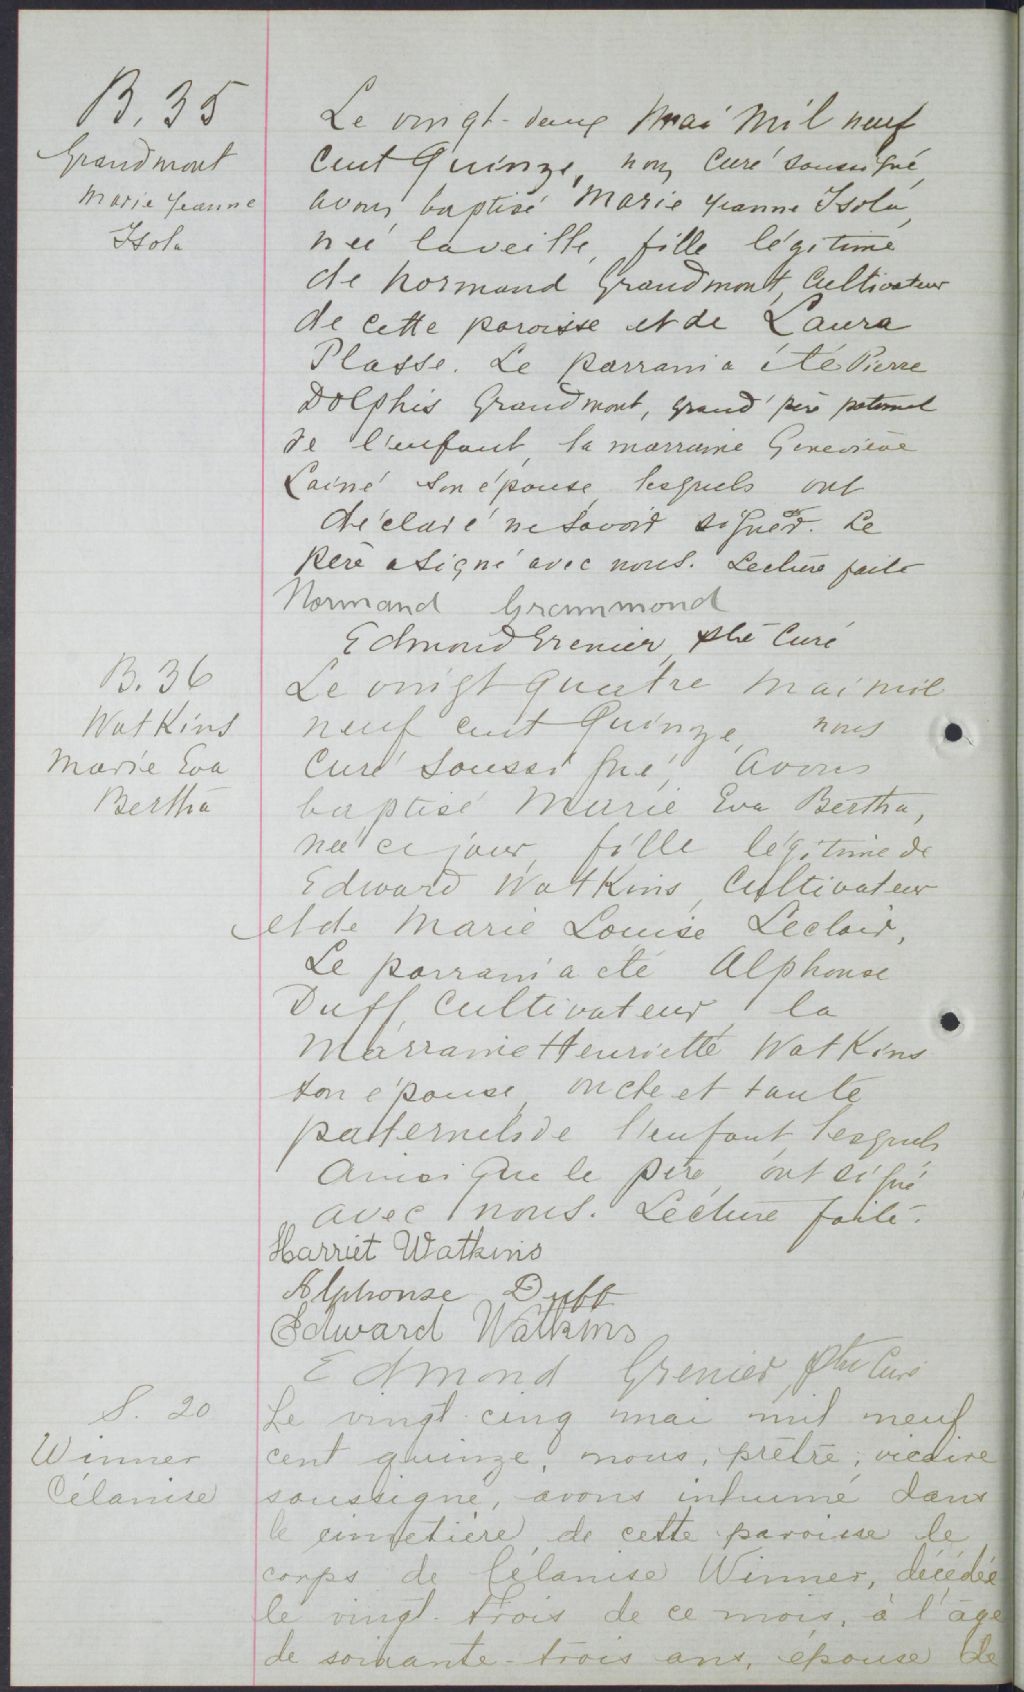 B. 35
Grandmont
Marie Jeanne
Isola
Le vingt-deux Mai Mil neuf
cent Quinze, nous Curé soussigné,
avons baptisé Marie Jeanne Isola,
née la veille, fille légitime
de Normand Grandmont, Cultivateur
de cette paroisse et de Laura
Plasse. Le parrain a été Pierre
Dolphis Grandmont, grand'père paternel
de l'enfant, la marraine Geneviève
Lainé son épouse, lesquels ont
déclaré ne savoir signer. Le
père a signé avec nous. Lecture faite
Normand Grammond
Edmond Grenier, ptre Curé
B. 36
Watkins
Marie Eva
Bertha
Le vingt quatre Mai mil
neuf cent Quinze, nous
Curé soussigné, avons
baptisé Marie Eva Bertha,
née ce jour, fille légitime de
Edward Watkins, Cultivateur
et de Marie Louise Leclair,
Le parrain a été Alphonse
Duff, Cultivateur, la
Marraine Henriette Watkins
son épouse, oncle et tante
paternels de l'enfant, lesquels
ainsi que le père, ont signé
avec nous. Lecture faite.
Harriet Watkins
Alphonse Duff
Edward Watkins
Edmond Grenier, ptre Curé
S. 20
Winner
Célanise
Le vingt-cinq mai mil neuf
cent quinze, nous, prêtre, vicaire
soussigné, avons inhumé dans
le cimetière de cette paroisse le
corps de Célanise Winner, décédée
le vingt-trois de ce mois, à l'âge
de soixante-trois ans, épouse de